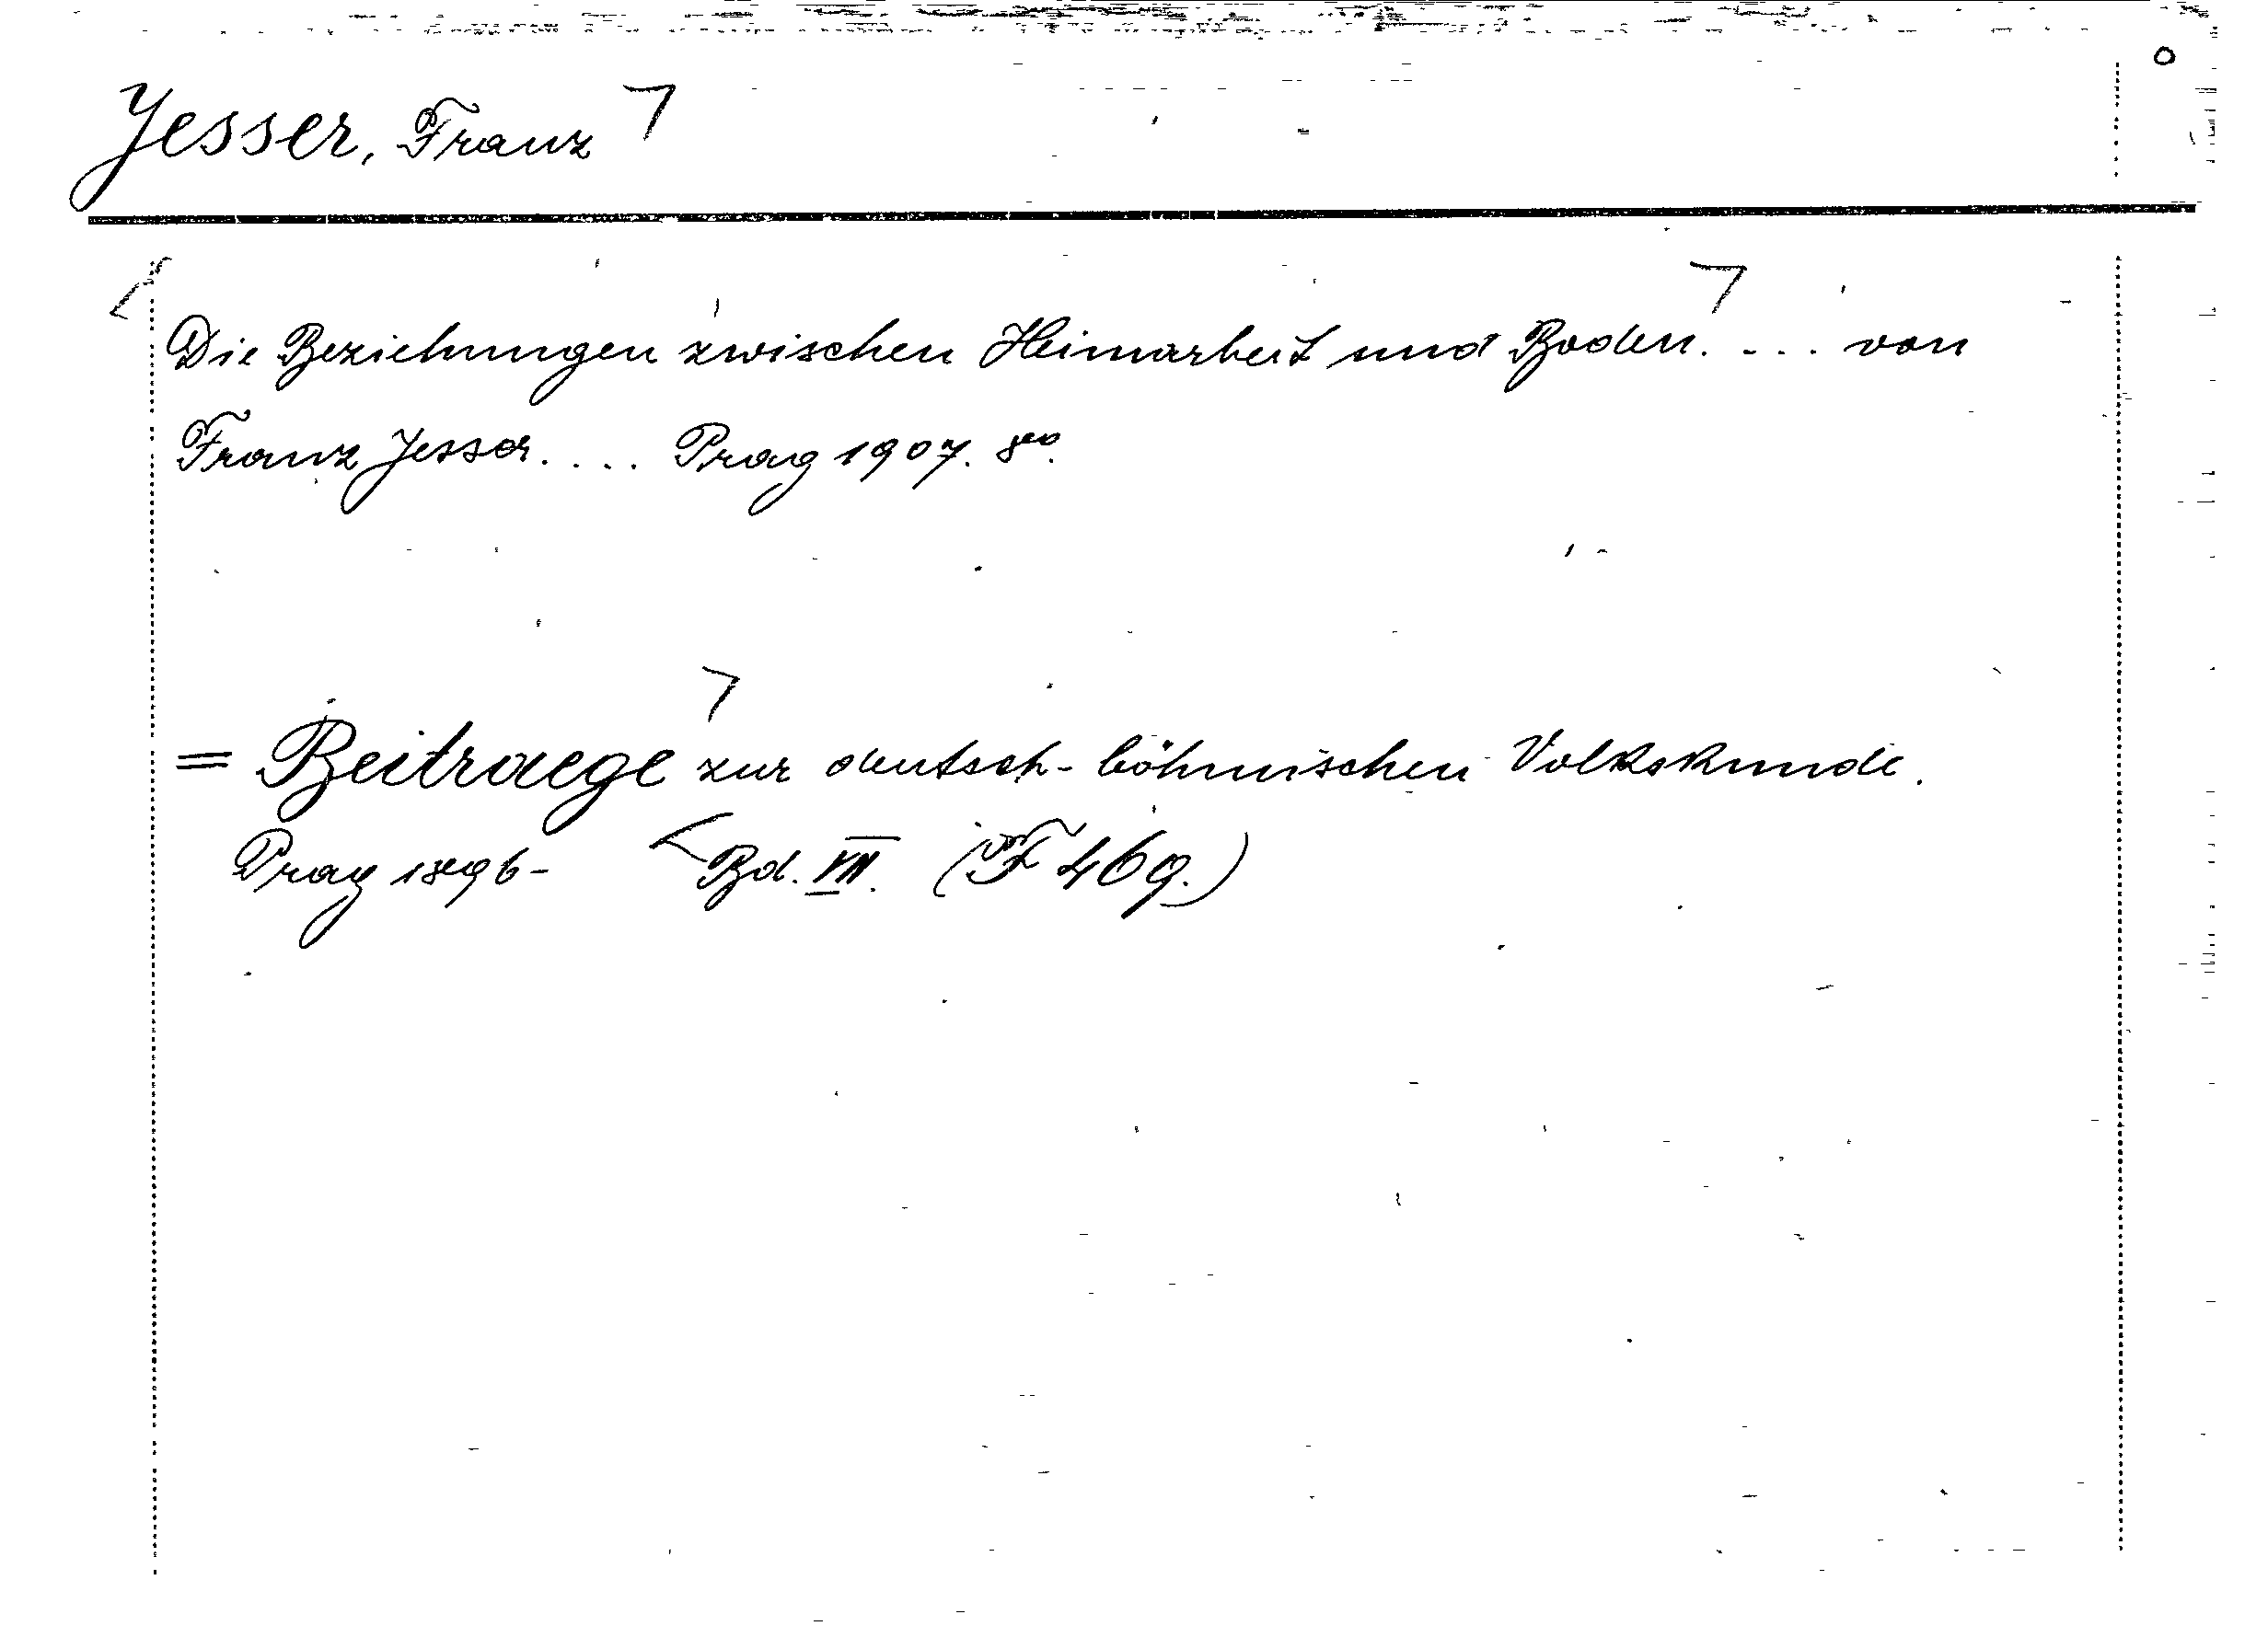 Jesser, Franz
Die Beziehungen zwischen Heimarbeit und Boden. ... von
Franz Jesser. ... Prag 1907. 8vo.
= Beitraege zur deutsch-böhmischen Volkskunde.
Prag 1896- Bd. VIII. (F 469.)